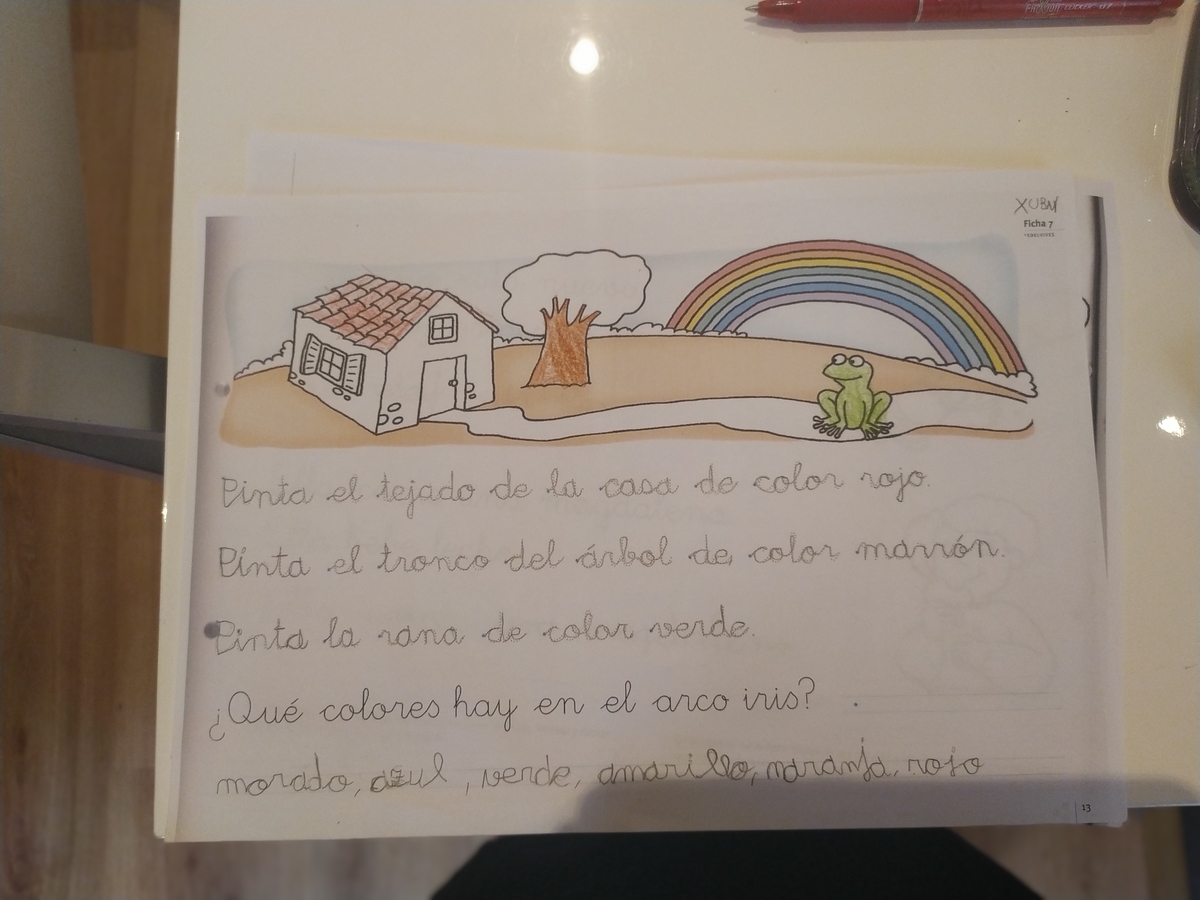 XUBN
Ficha 7
Pinta el tejado de la casa de color rojo.
Pinta el tronco del árbol de color marrón.
Pinta la rana de color verde.
¿Qué colores hay en el arco iris?
morado, azul, verde, amarillo, naranja, rojo
13